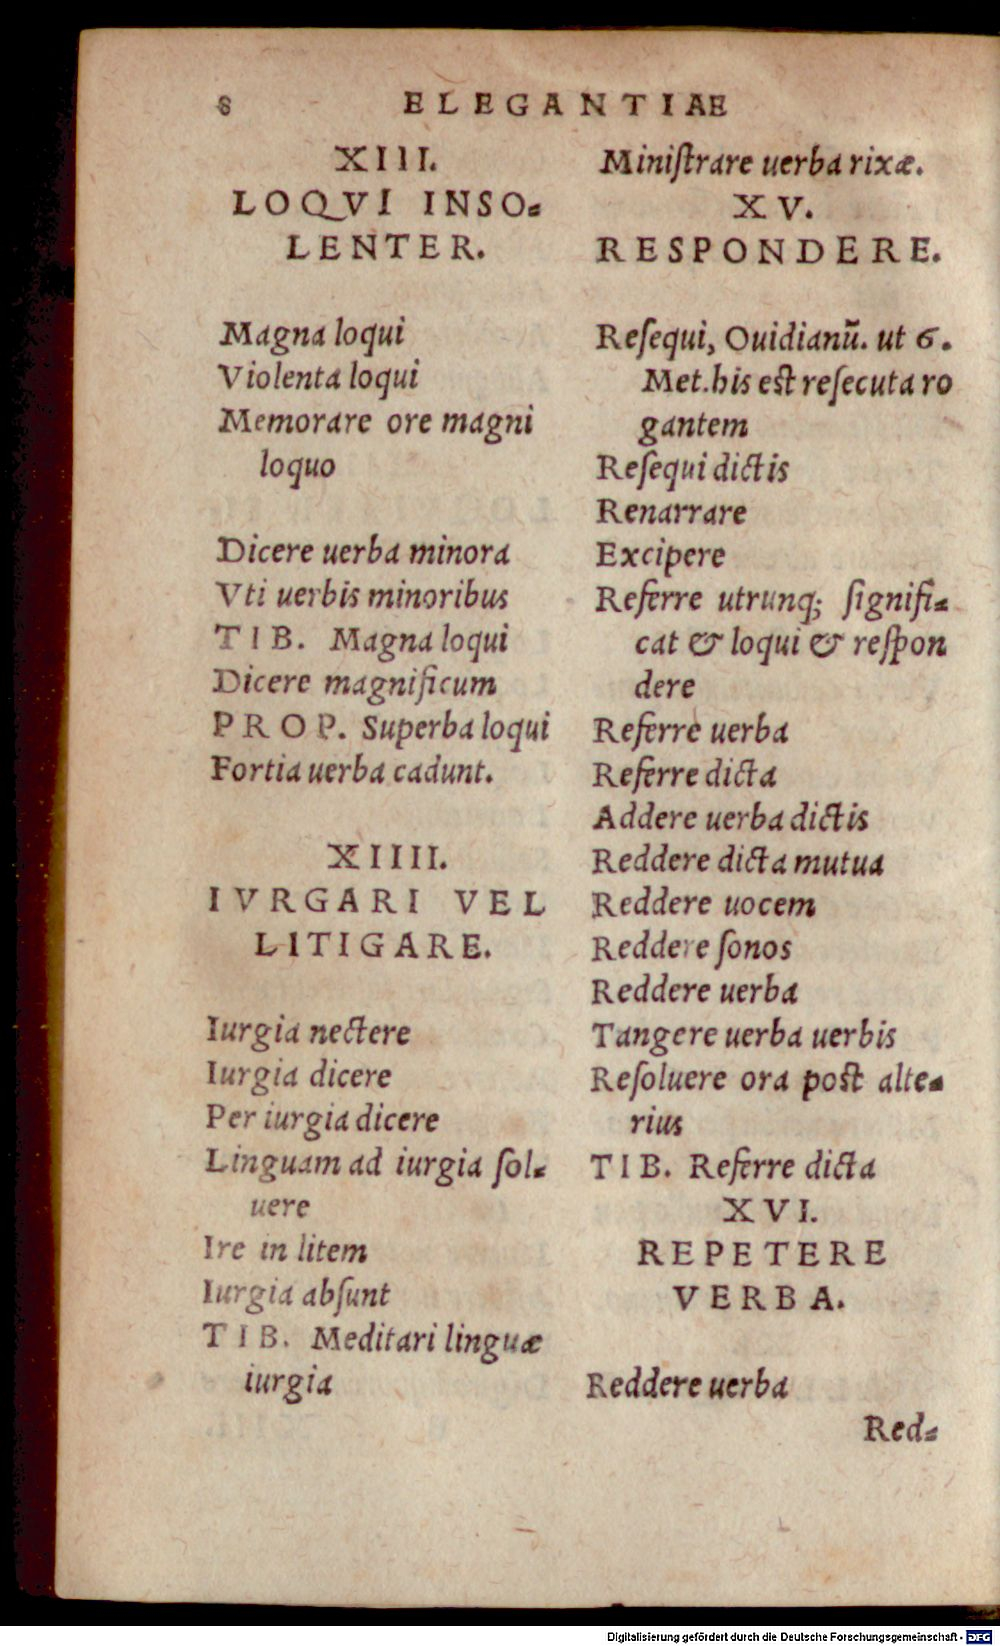 8 ELEGANTIAE
XIII.
LOQVI INSO-
LENTER.
Magna loqui
Violenta loqui
Memorare ore magni
loquo
Dicere uerba minora
Vti uerbis minoribus
TIB. Magna loqui
Dicere magnificum
PROP. Superba loqui
Fortia uerba cadunt.
XIIII.
IVRGARI VEL
LITIGARE.
Iurgia nectere
Iurgia dicere
Per iurgia dicere
Linguam ad iurgia ſol-
uere
Ire in litem
Iurgia abſunt
TIB. Meditari linguæ
iurgia
Miniſtrare uerba rixæ.
XV.
RESPONDERE.
Reſequi, Ouidianũ. ut 6.
Met. his eſt reſecuta ro
gantem
Reſequi dictis
Renarrare
Excipere
Referre utrunq; ſignifi-
cat & loqui & reſpon
dere
Referre uerba
Referre dicta
Addere uerba dictis
Reddere dicta mutua
Reddere uocem
Reddere ſonos
Reddere uerba
Tangere uerba uerbis
Reſoluere ora poſt alte-
rius
TIB. Referre dicta
XVI.
REPETERE
VERBA.
Reddere uerba
Red-
Digitalisierung gefördert durch die Deutsche Forschungsgemeinschaft - DFG